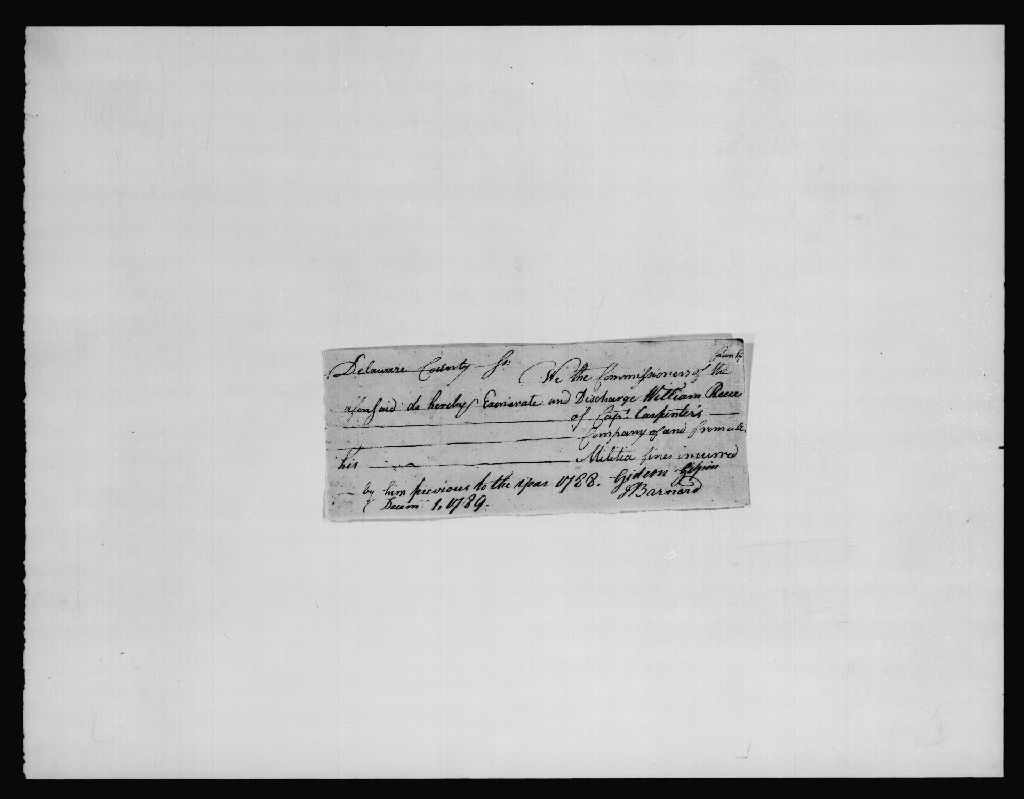 Delaware County Ss.
We the Commissioners of the County
aforesaid do hereby Exonerate and Discharge William Reece
of Capt. Carpenters
Company of and from all
his Militia fines incurred
by him previous to the year 1788. Gideon Gilpin
Decem 1, 1789. J Barnard